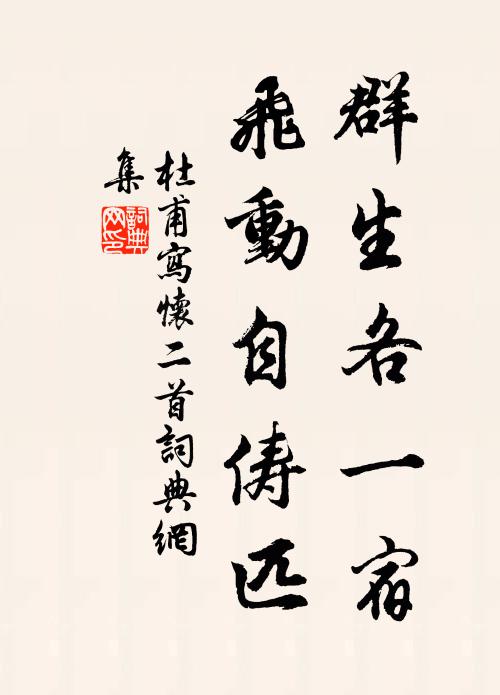 群生各一宿
飛動自儔匹
杜甫寫懷二首詞典網
集
詞典
网印